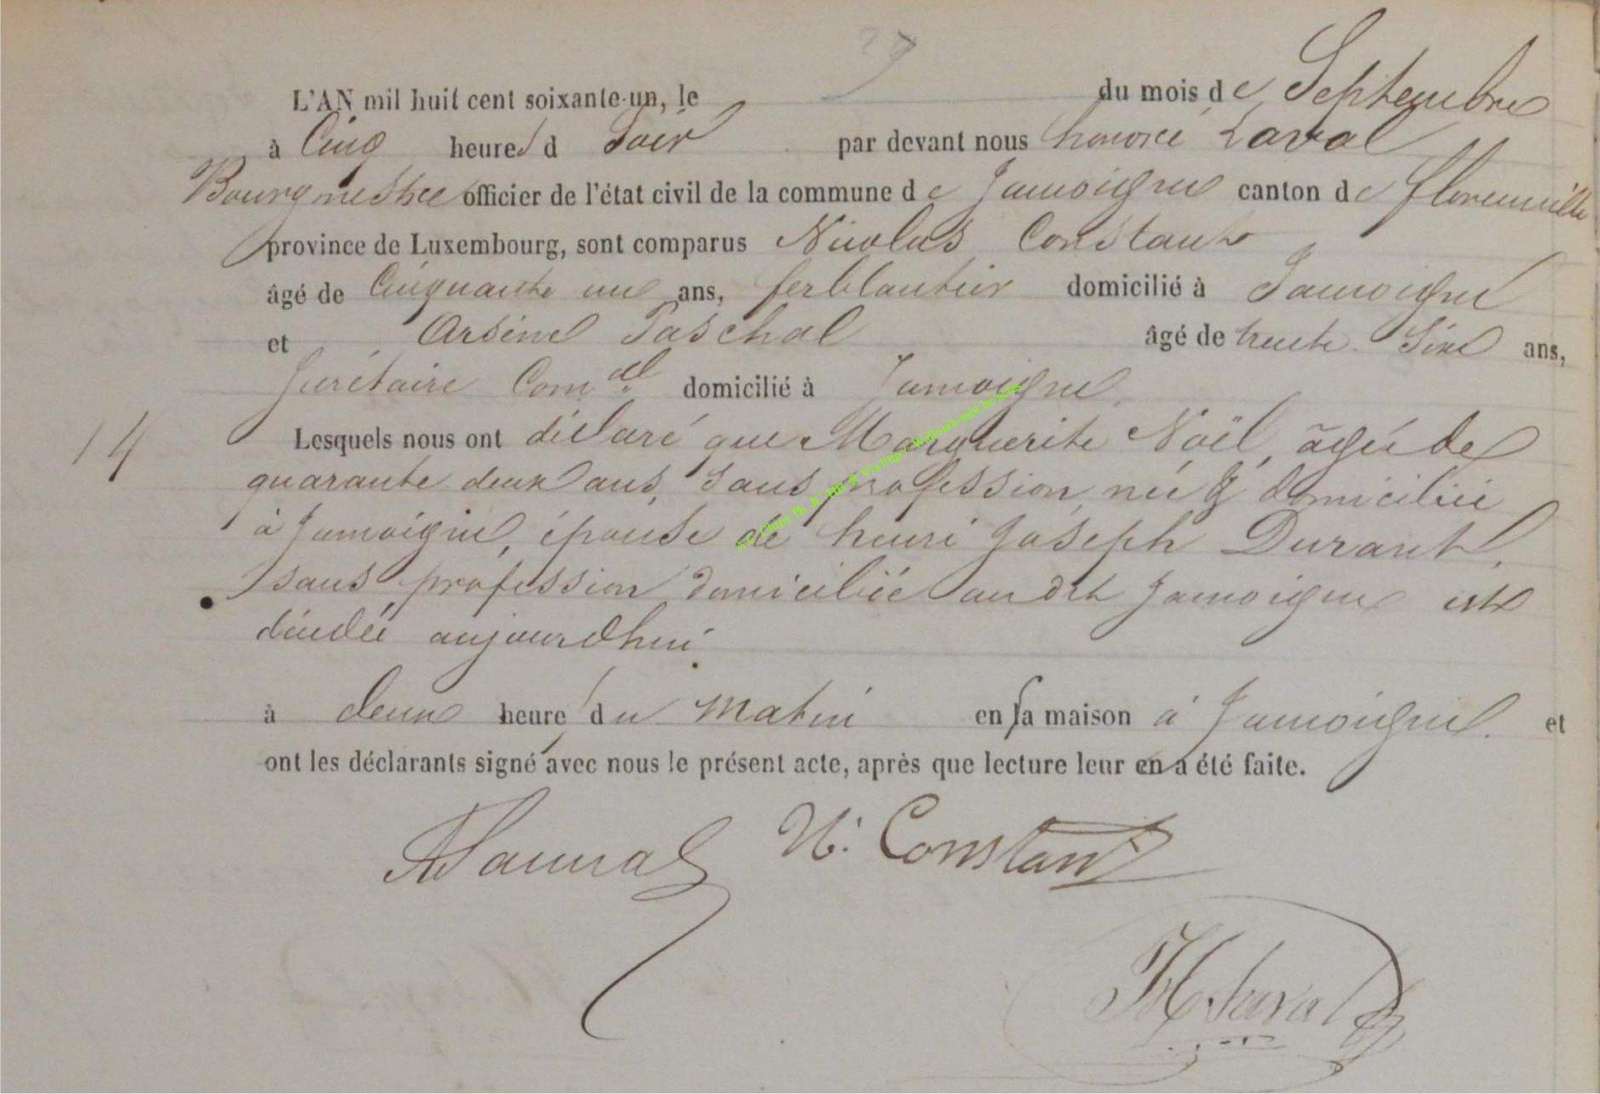 L'AN mil huit cent soixante-un, le du mois de Septembre
à Cinq heures d Soir par devant nous honoré Laval
Bourgmestre officier de l'état civil de la commune de Jamoigne canton de florenville
province de Luxembourg, sont comparus Nicolas Constant
âgé de Cinquante une ans, ferblantier domicilié à Jamoigne
et Arsène Paschal âgé de trente Sixe ans,
Secrétaire Comal domicilié à Jamoigne
14
Lesquels nous ont déclaré que Marguerite Noël, âgée de
quarante deux ans, sans profession, née & domiciliée
à Jamoigne, épouse de henri Joseph Durant,
sans profession domiciliée au dit Jamoigne est
décédée aujourdhui
à deux heures du matin en sa maison à Jamoigne. et
ont les déclarants signé avec nous le présent acte, après que lecture leur en a été faite.
N. Constant
H Laval